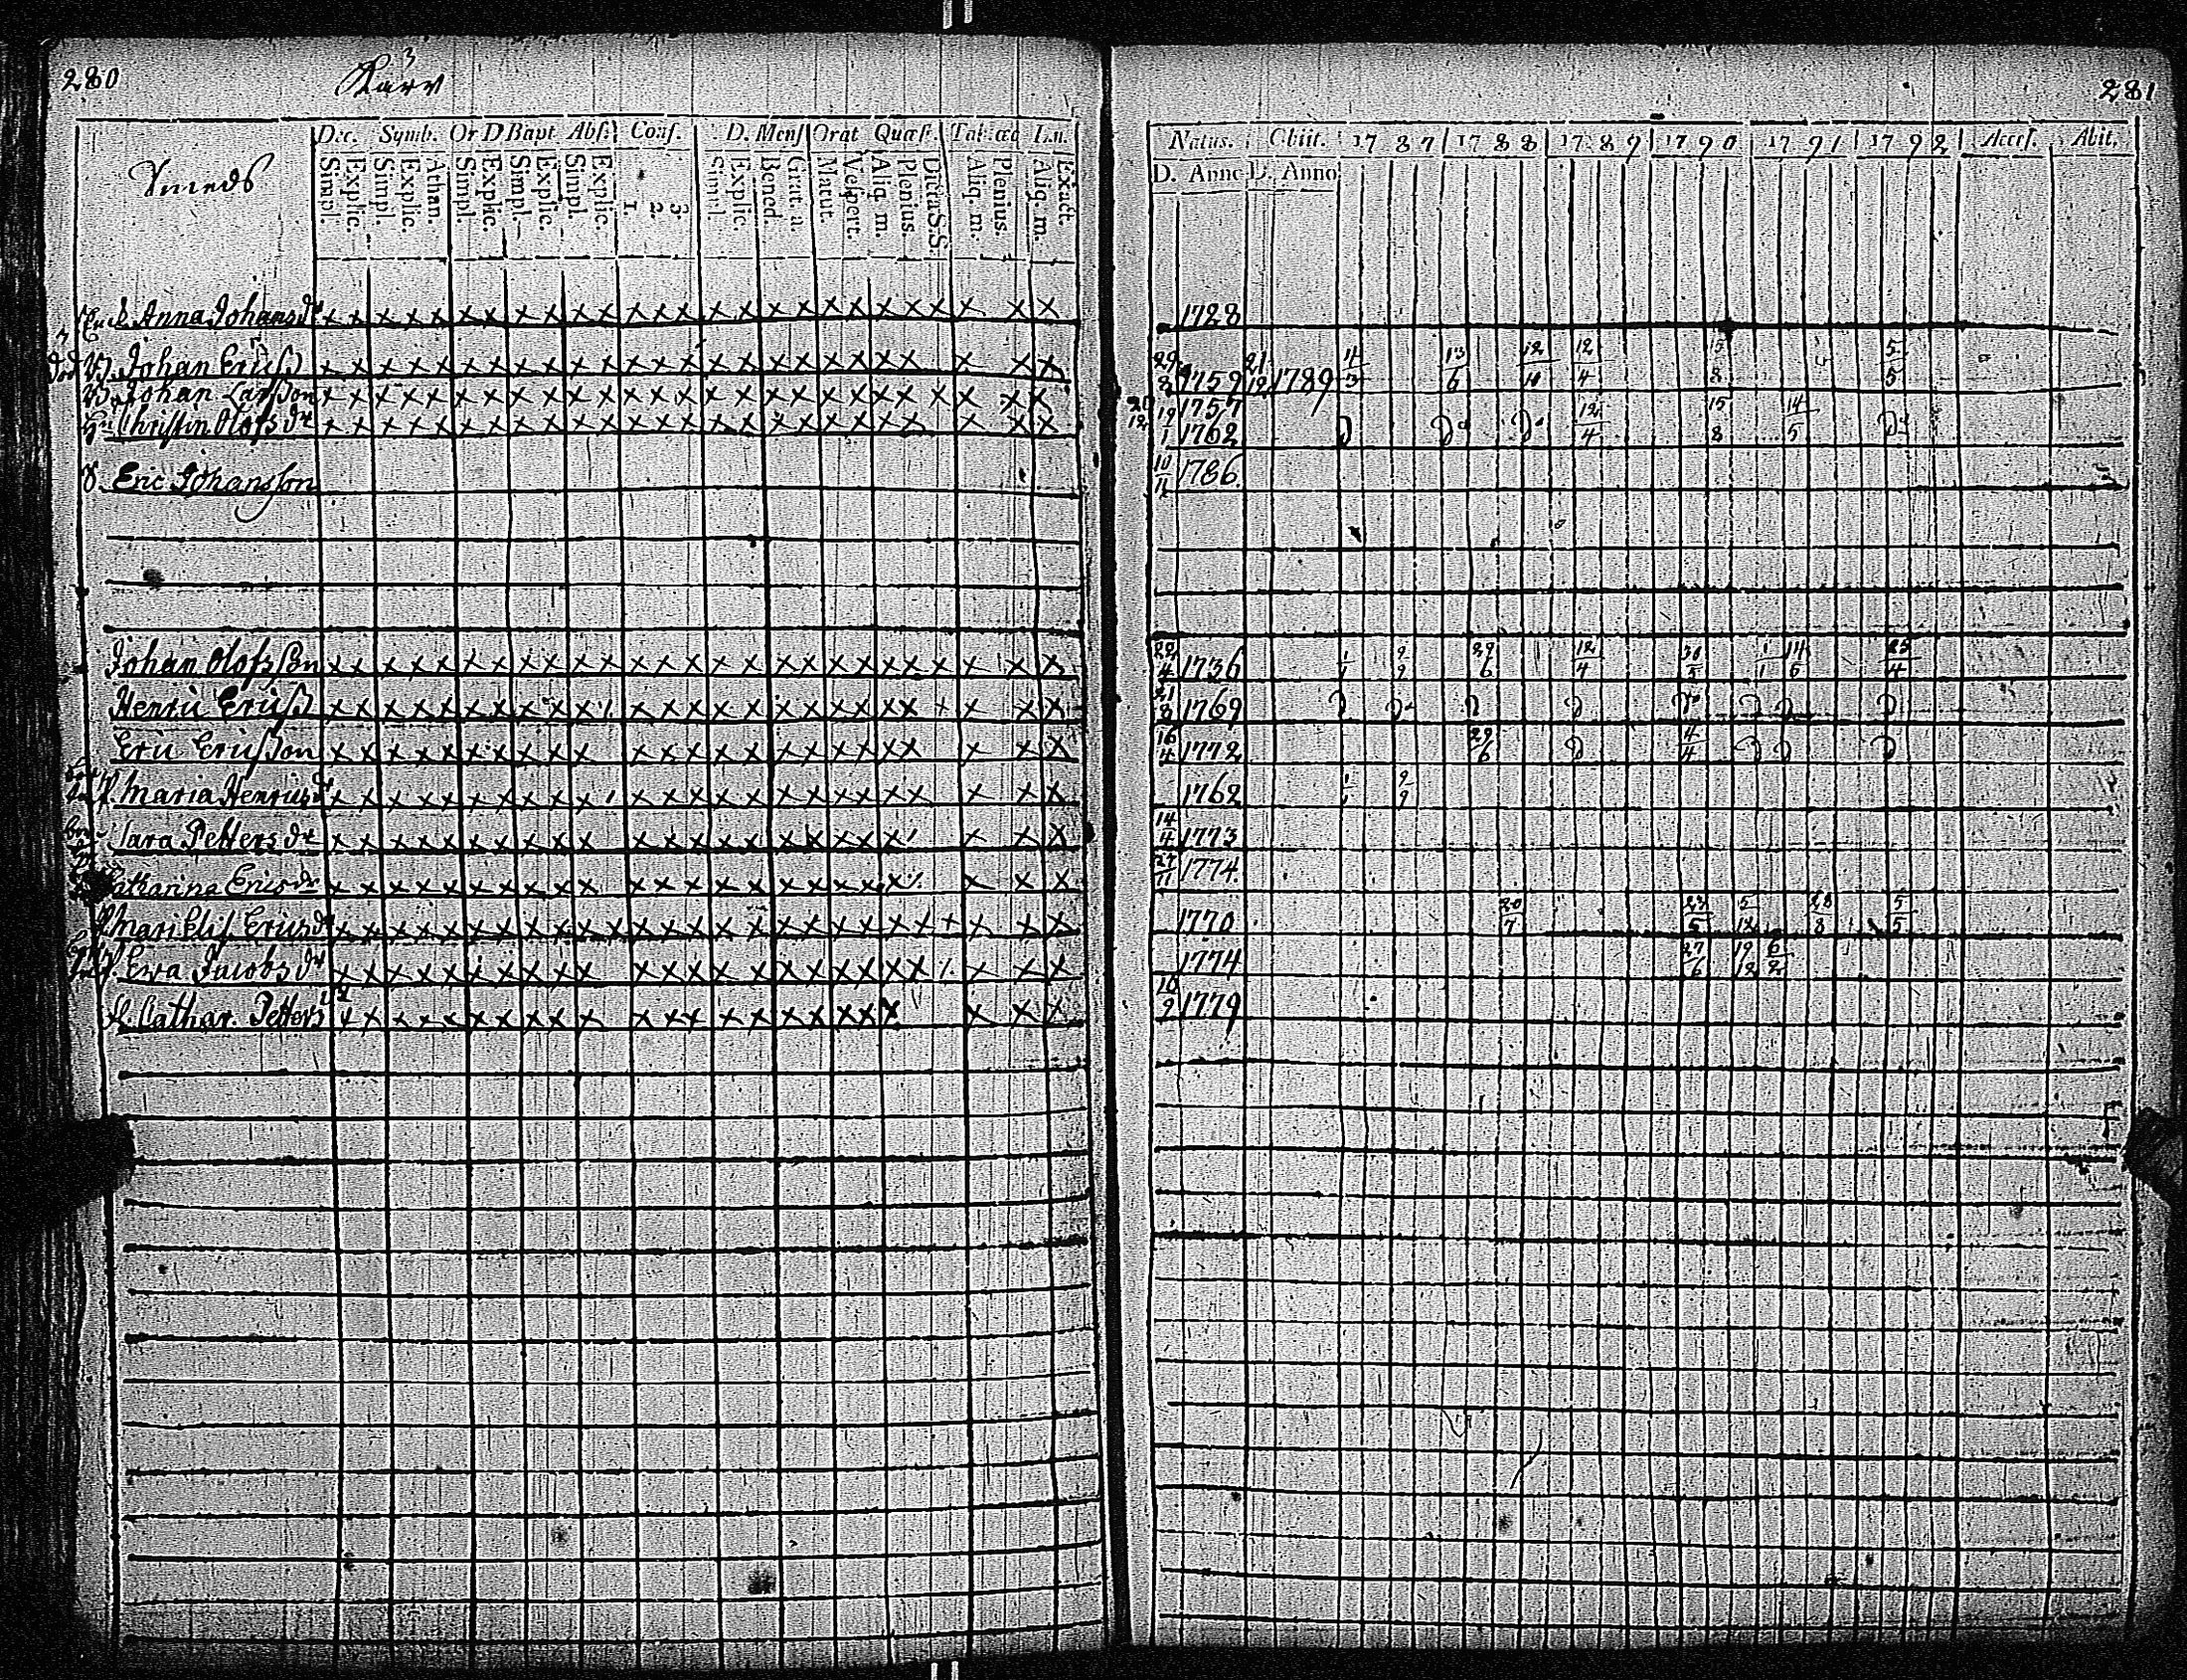 280
281
Dec. Symb. Or D Bapt Abs. Conf. D. Mens Orat Quæst.
Natus. Obiit. 1787 1788 1789 1790 1791 1792 Access. Abit.
Simpl. Explic. Simpl. Explic. Athan. Simpl. Explic. Simpl. Explic. Simpl. Explic. 1. 2. 3. Simpl. Explic. Bened. Grat. a. Matut. Vespert. Aliq. m. Plenius. Dicta S.S. Aliq. m. Plenius. Aliq. m. Exact.
D. Anno D. Anno
Smeds
Anna Johans dr 1728
Johan Ericss 29/8 1759 21/12 1789 13/6 12/4 15/8 5/5
Johan Larsson 1757
Christin Olofs dr 19/1 1762 12/4 15/8 14/5
Eric Johansson 10/11 1786
Johan Olofsson 22/4 1736 1/1 9/9 29/6 12/4 1/1 14/5 25/4
Henric Ericss 21/8 1769
Eric Ericsson 16/4 1772 29/6 4/4
Maria Henrics dr 1762 1/1 9/9
Sara Petters dr 14/4 1773
Catharina Erics dr 1774
Mari Elis Erics dr 1770 20/7 23/5 5/12 28/8 5/5
Ewa Jacobs dr 1774 27/6 19/12 6/2
Cathar. Petters dr 10/9 1779